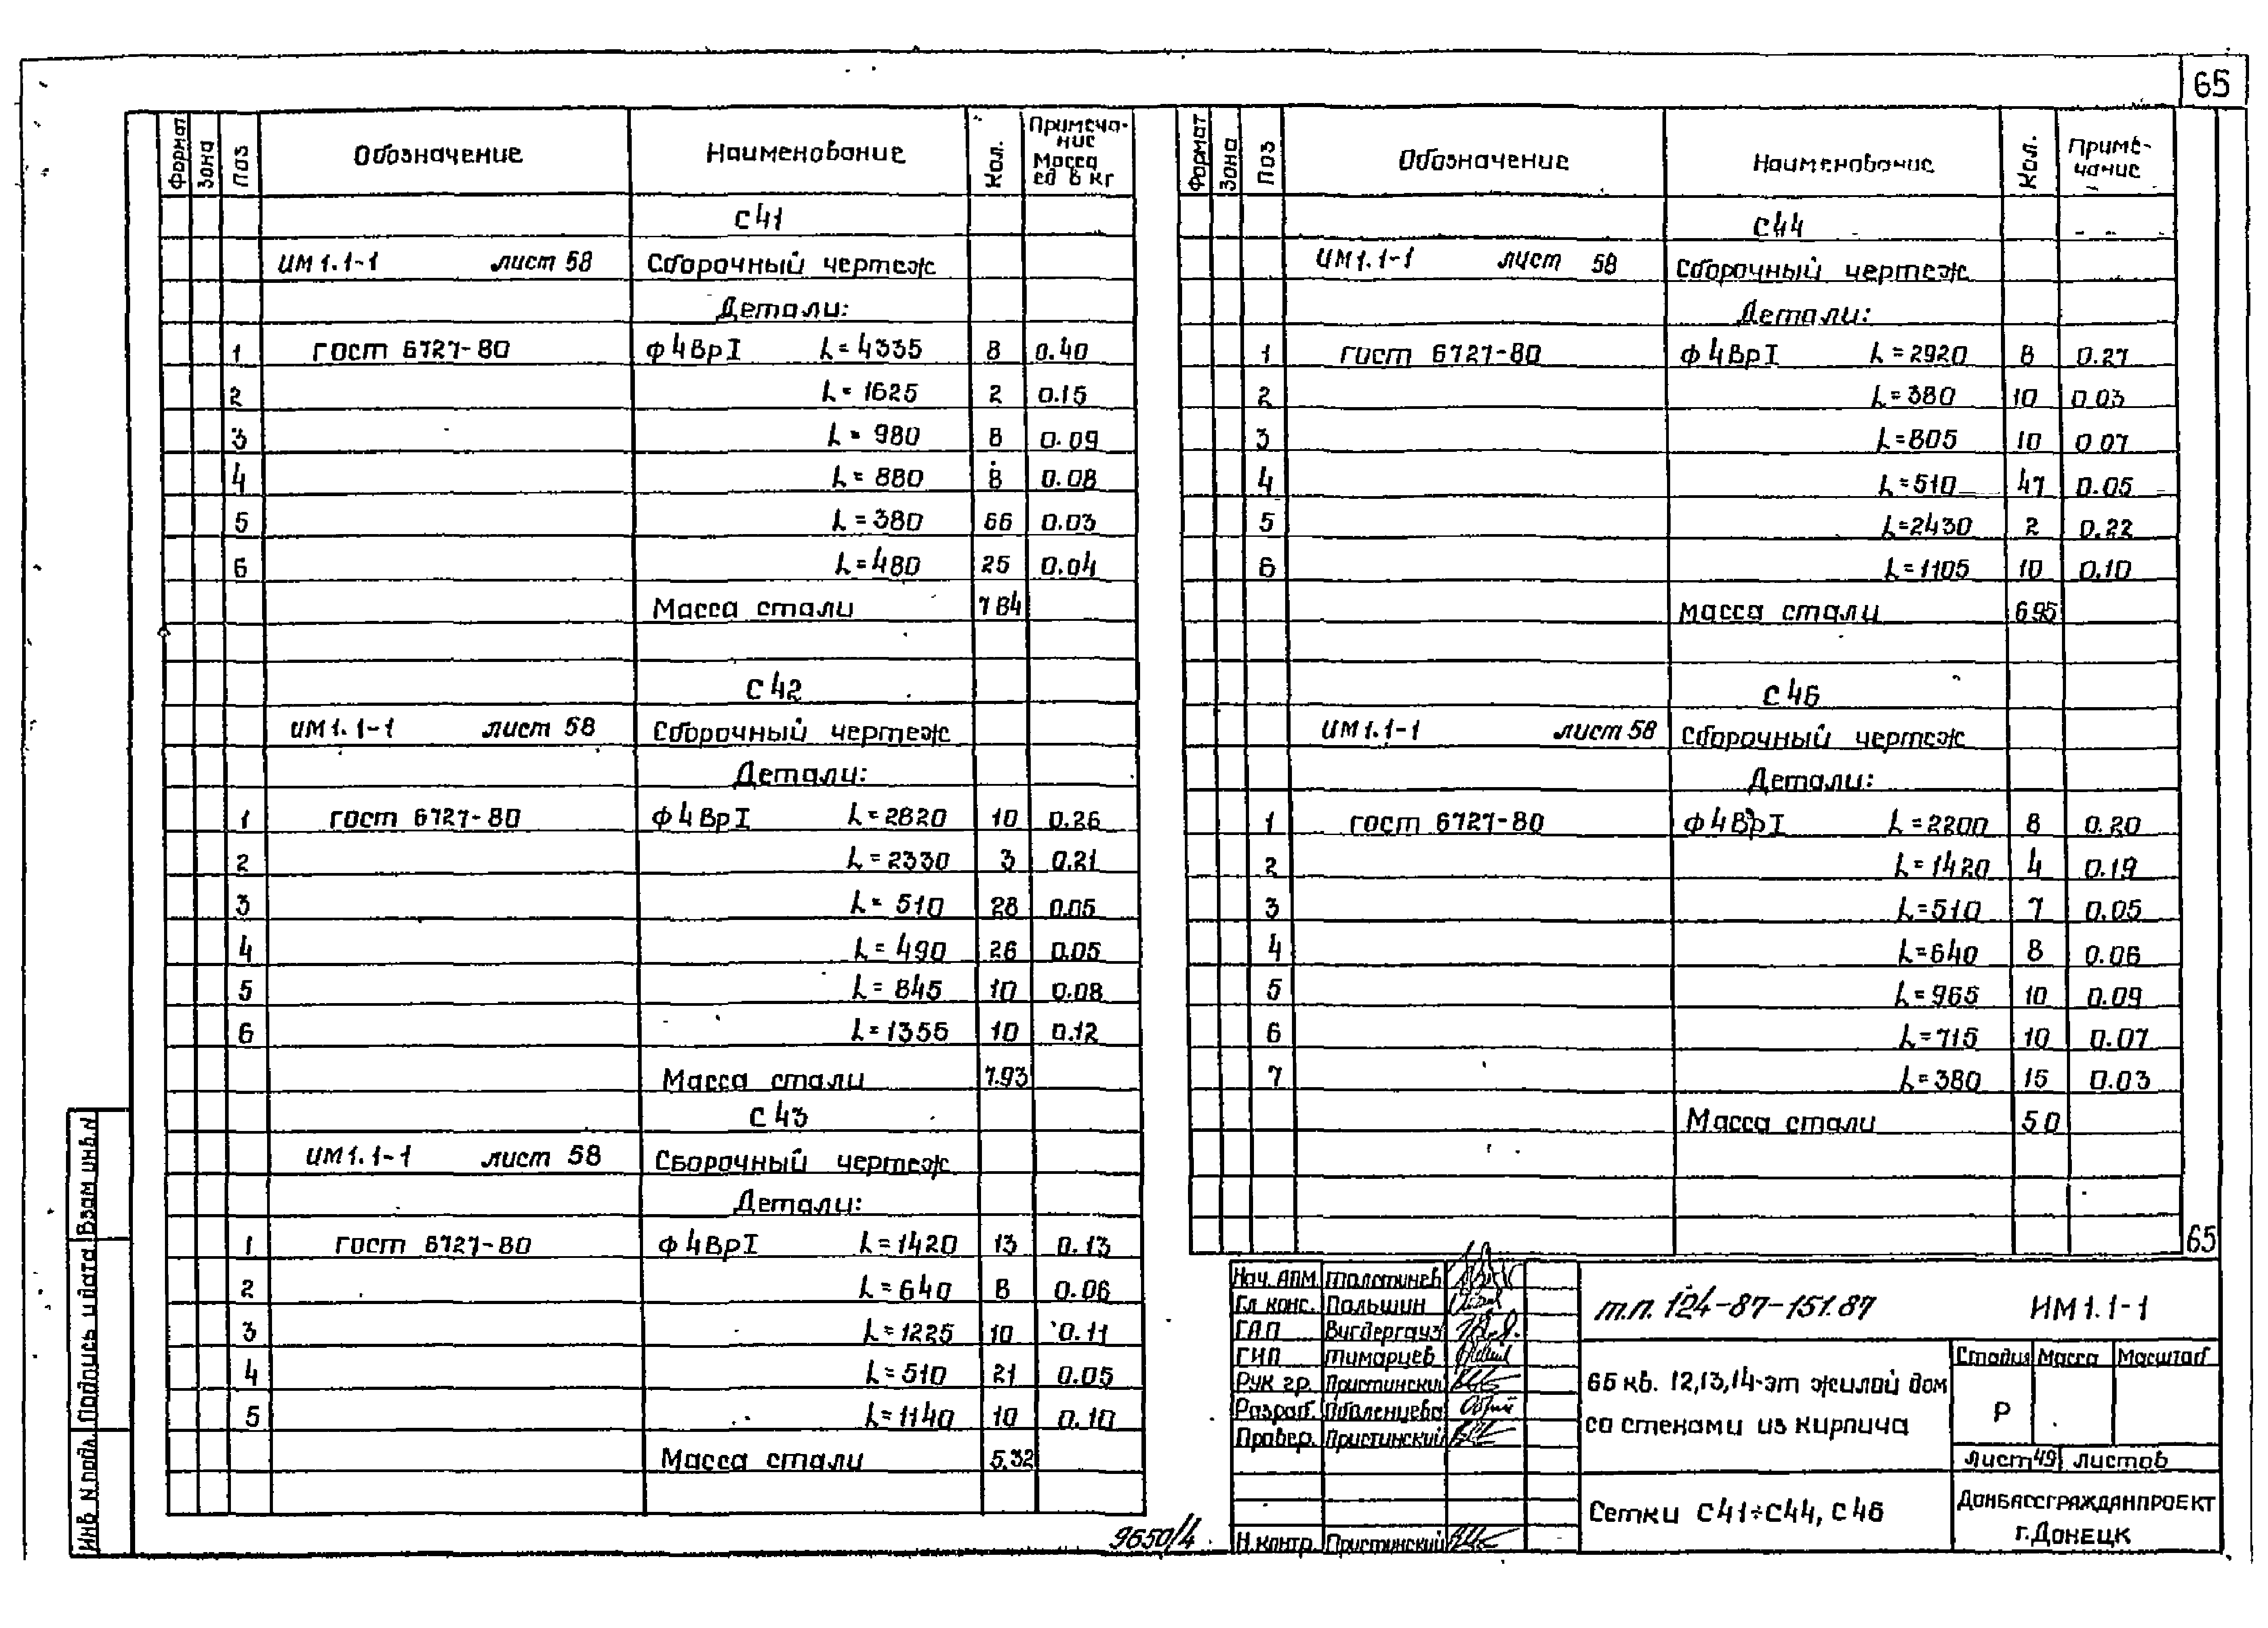 65
Формат Зона Поз Обозначение Наименование Кол. Примеча-ние Масса ед в кг
С41
ИМ1.1-1 лист 58 Сборочный чертеж
Детали:
1 гост 6727-80 Ф4ВрI L=4335 8 0.40
2 L=1625 2 0.15
3 L=980 8 0.09
4 L=880 8 0.08
5 L=380 66 0.03
6 L=480 25 0.04
Масса стали 7 84
С42
ИМ1.1-1 лист 58 Сборочный чертеж
Детали:
1 гост 6727-80 Ф4ВрI L=2820 10 0.26
2 L=2330 3 0.21
3 L=510 28 0.05
4 L=490 26 0.05
5 L=845 10 0.08
6 L=1355 10 0.12
Масса стали 7.93
С43
ИМ1.1-1 лист 58 Сборочный чертеж
Детали:
1 гост 6727-80 Ф4ВрI L=1420 13 0.13
2 L=640 8 0.06
3 L=1225 10 0.11
4 L=510 21 0.05
5 L=1140 10 0.10
Масса стали 5.32
Формат Зона Поз Обозначение Наименование Кол. Приме-чание
С44
ИМ1.1-1 лист 58 Сборочный чертеж
Детали:
1 гост 6727-80 Ф4ВрI L=2920 8 0.27
2 L=380 10 0 03
3 L=805 10 0 07
4 L=510 47 0.05
5 L=2430 2 0.22
6 L=1105 10 0.10
масса стали 6 95
С46
ИМ1.1-1 лист 58 Сборочный чертеж
Детали:
1 гост 6727-80 Ф4ВрI L=2200 8 0.20
2 L=1420 4 0.19
3 L=510 7 0.05
4 L=640 8 0.06
5 L=965 10 0.09
6 L=715 10 0.07
7 L=380 15 0.03
Масса стали 5 0
65
Нач. АПМ
Гл конс. Пальшин
ГАП Вигдергауз
ГИП Тимарцев
Рук гр. Пристинский
Разраб.
Провер. Пристинский
Н.контр Пристинский
т.п. 124-87-151.87 ИМ1.1-1
65 кв. 12,13,14-эт жилой дом
со стенами из кирпича
Стадия Масса Масштаб
Р
Лист 49 Листов
Сетки С41÷С44, С46
ДОНБАССГРАЖДАНПРОЕКТ
г.ДОНЕЦК
Инв N подл. Подпись и дата Взам инв.N
9650/4